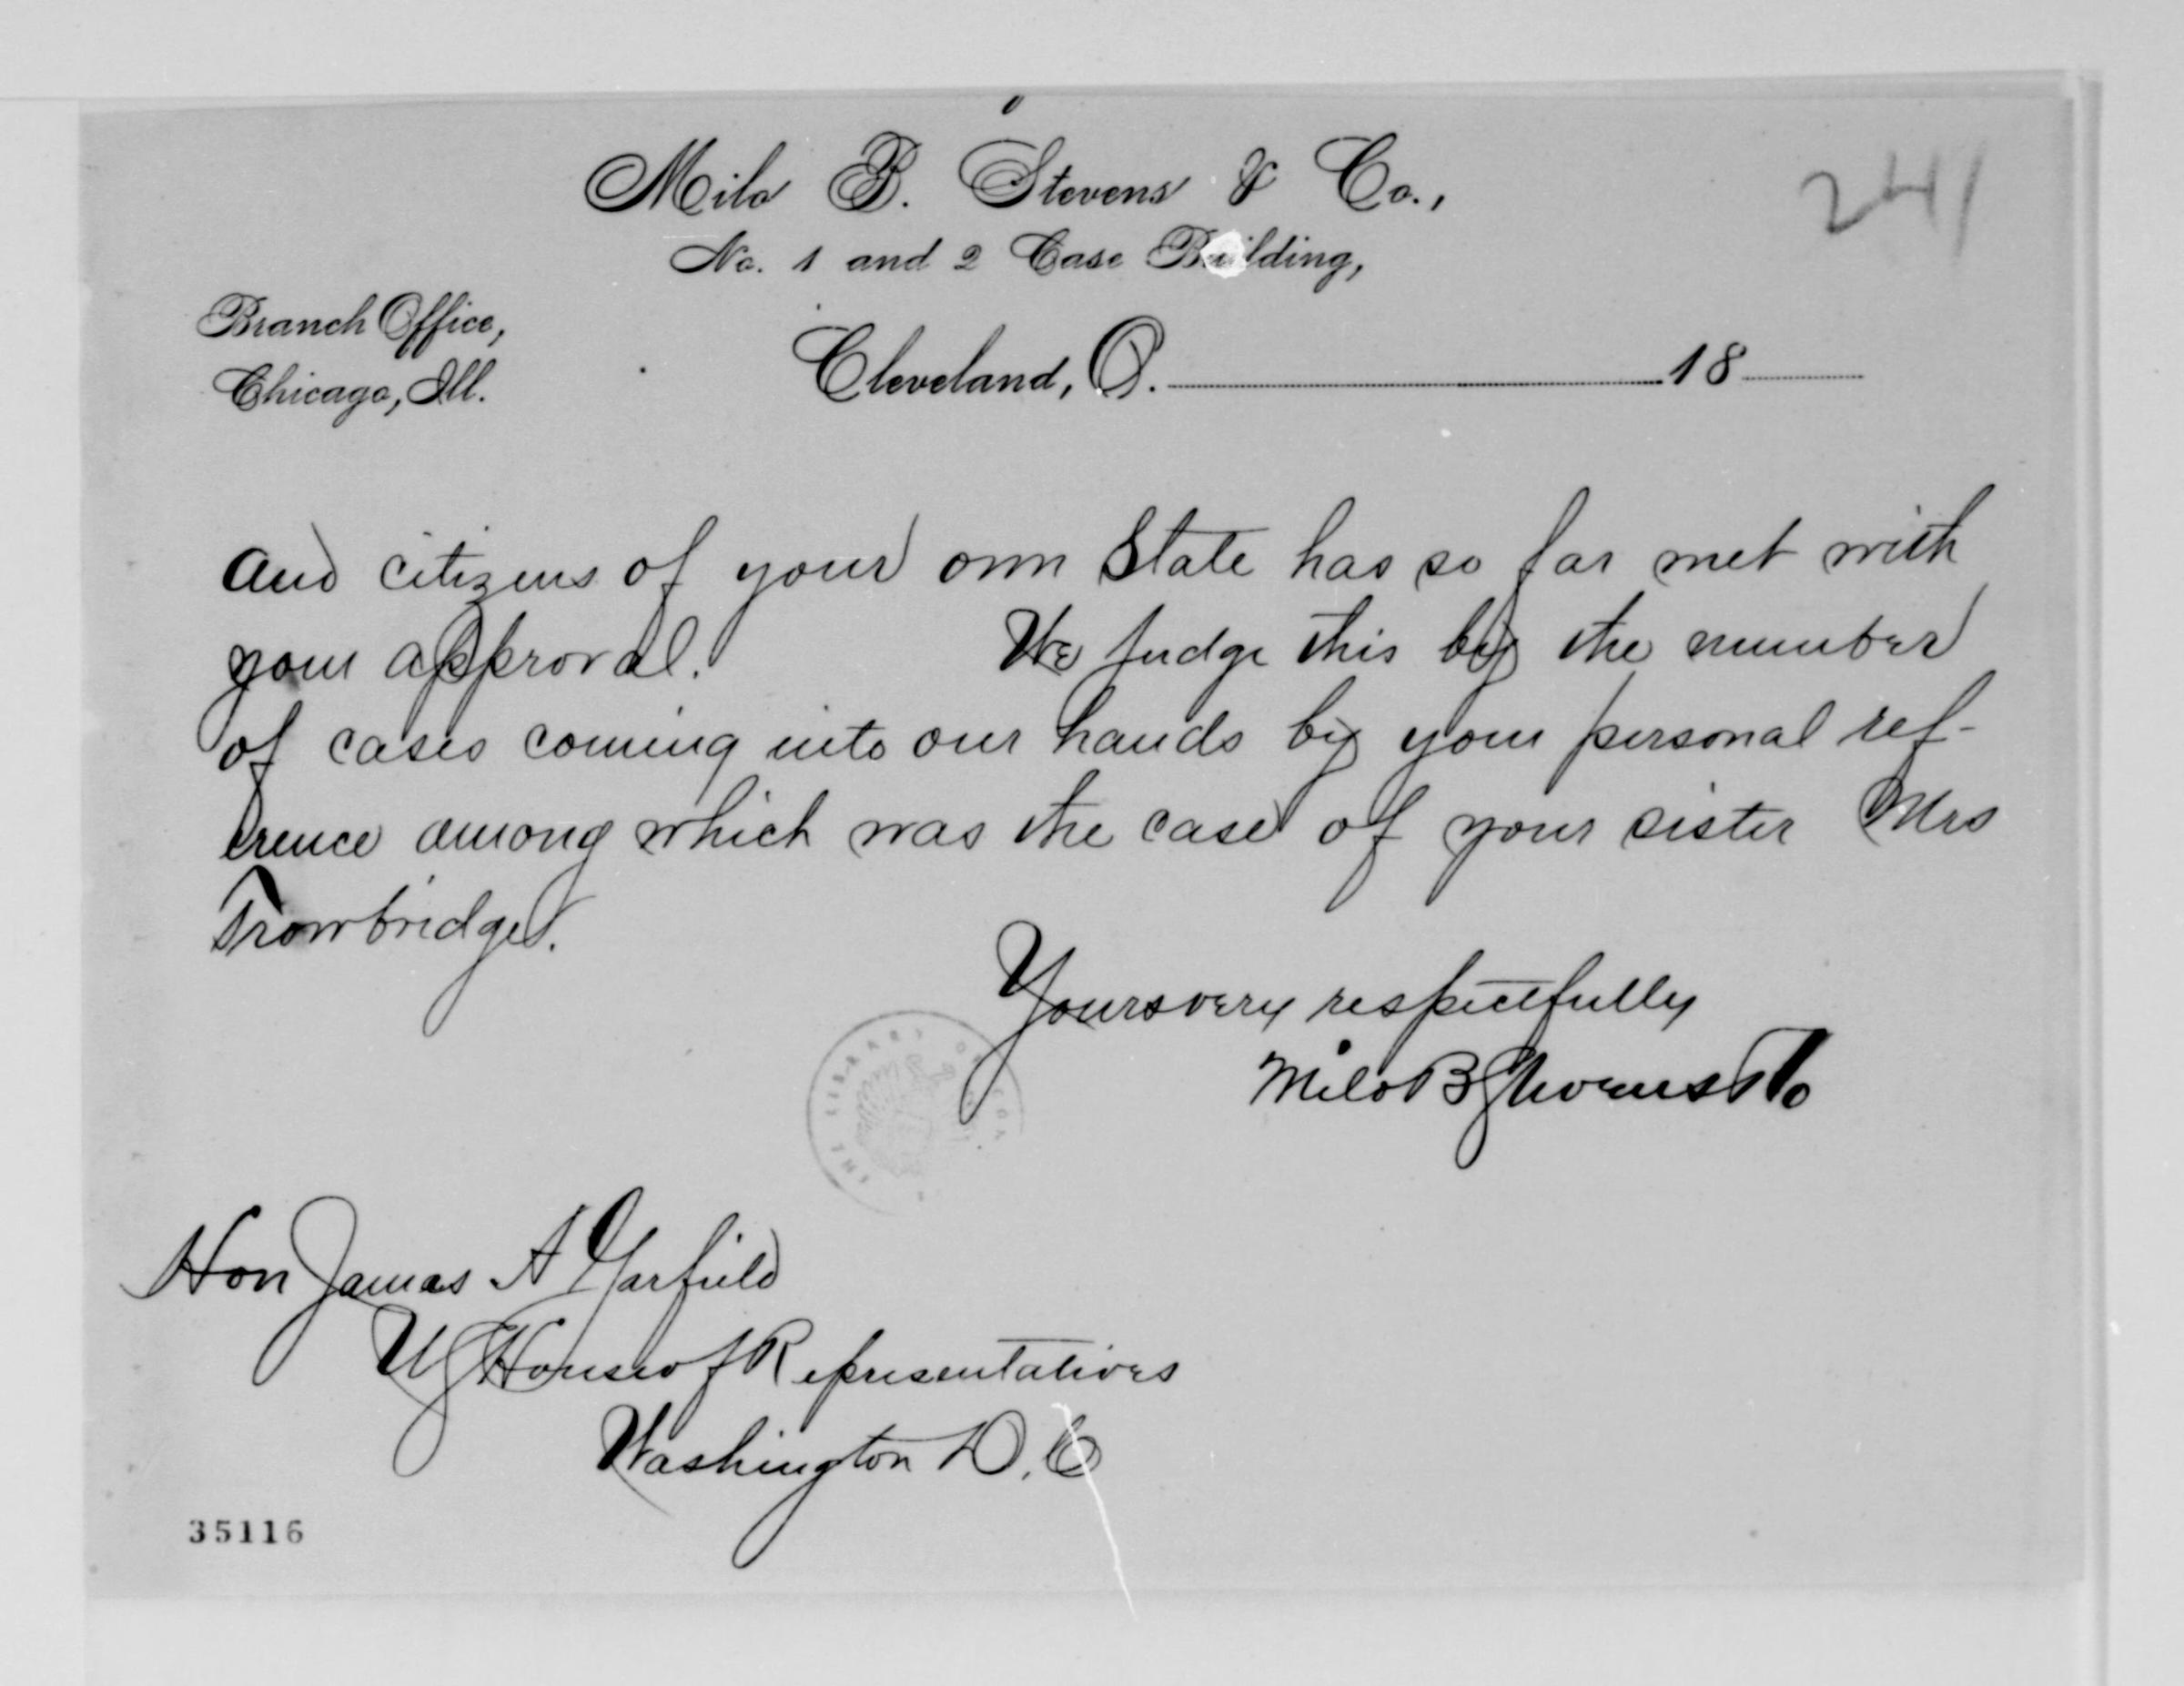 241
Milo B. Stevens & Co.,
No. 1 and 2 Case Building,
Branch Office,
Chicago, Ill.
Cleveland, O. 18
and citizens of your own State has so far met with
your approval. We judge this by the number
of cases coming into our hands by your personal ref-
erence among which was the case of your sister Mrs
Trowbridge.
Yours very respectfully
Milo B Stevens & Co
THE LIBRARY OF CON
Hon James A Garfield
US House of Representatives
Washington D.C
35116